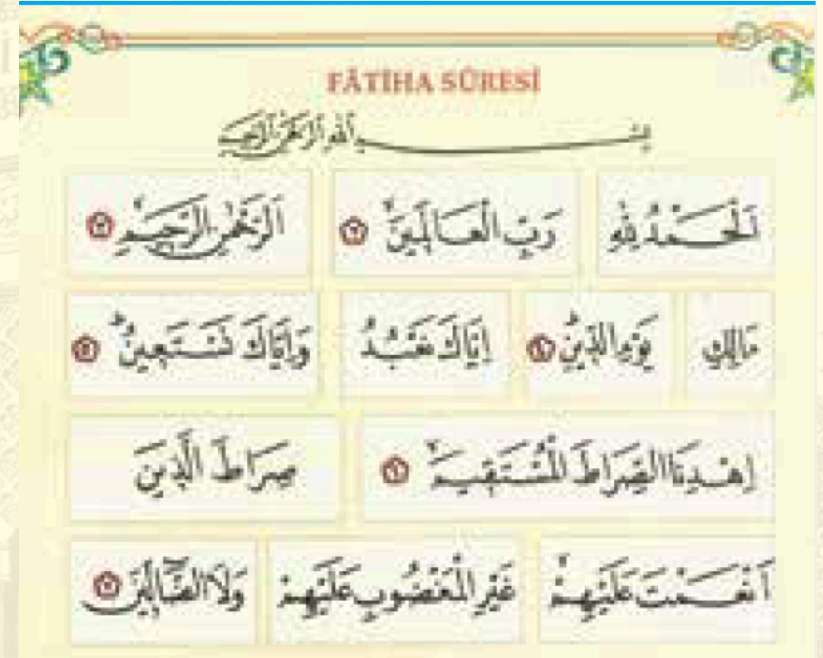 FÂTİHA SÛRESİ
بِسْمِ اللّٰهِ الرَّحْمٰنِ الرَّحِيمِ
اَلْحَمْدُ لِلّٰهِ رَبِّ الْعَالَمِينَۙ ﴿٢﴾ اَلرَّحْمٰنِ الرَّحِيمِۙ ﴿٣﴾
مَالِكِ يَوْمِ الدِّينِۜ ﴿٤﴾ اِيَّاكَ نَعْبُدُ وَاِيَّاكَ نَسْتَعِينُۜ ﴿٥﴾
اِهْدِنَا الصِّرَاطَ الْمُسْتَقِيمَۙ ﴿٦﴾ صِرَاطَ الَّذِينَ
اَنْعَمْتَ عَلَيْهِمْۙ غَيْرِ الْمَغْضُوبِ عَلَيْهِمْ وَلَا الضَّٓالِّينَ ﴿٧﴾